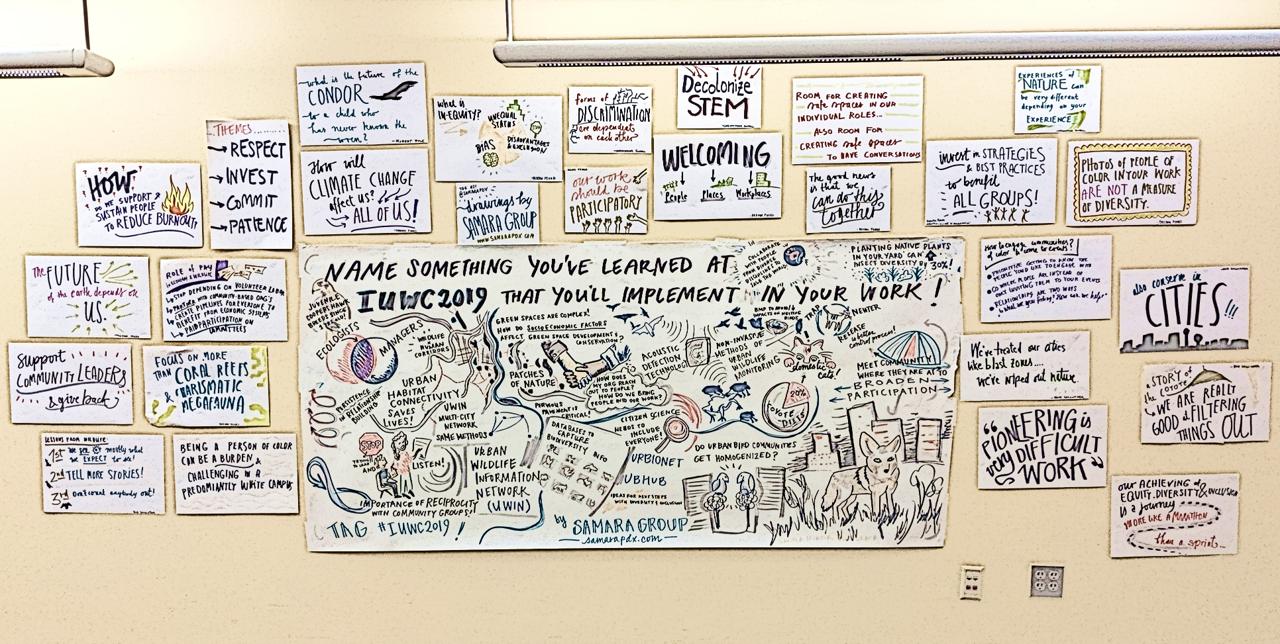 what is the future of the
CONDOR
to a child who
has never known the
wren?
How will
CLIMATE CHANGE
affect us?
ALL OF US!
THEMES
RESPECT
INVEST
COMMIT
PATIENCE
HOW
DO WE SUPPORT &
SUSTAIN PEOPLE
TO REDUCE BURNOUT?
The FUTURE
of the earth depends on
US.
ROLE OF PAY
STOP DEPENDING ON VOLUNTEER LABOR
BENEFIT FROM ECONOMIC SYSTEMS
PAID PARTICIPATION ON
COMMITTEES
Support
COMMUNITY LEADERS
& give back
FOCUS ON MORE
THAN
CORAL REEFS
& CHARISMATIC
MEGAFAUNA
LESSONS FROM WILDLIFE:
1st we see mostly what
we EXPECT to see!
2nd TELL MORE STORIES!
3rd
BEING A PERSON OF COLOR
CAN BE A BURDEN &
CHALLENGING IN A
PREDOMINANTLY WHITE CAMPUS
what is
IN-EQUITY?
UNEQUAL
STATUS
BIAS
DISADVANTAGES
& EXCLUSION
drawings by
SAMARA GROUP
WWW.SAMARAPDX.COM
forms of
DISCRIMINATION
are dependent
on each other
our work
should be
PARTICIPATORY
Decolonize
STEM
WELCOMING
People
Places
Workplaces
ROOM FOR CREATING
safe spaces IN OUR
INDIVIDUAL ROLES...
ALSO ROOM FOR
CREATING safe spaces
TO HAVE CONVERSATIONS
The good news
is that we
can do this
together
EXPERIENCES of
NATURE can
be very different
depending on your
EXPERIENCE!
invest in STRATEGIES
& BEST PRACTICES
to benefit
ALL GROUPS!
PHOTOS OF PEOPLE OF
COLOR IN YOUR WORK
ARE NOT A MEASURE
OF DIVERSITY.
also conserve in
CITIES!!!
We've treated our cities
like blast zones....
we've wiped out nature.
"PIONEERING is
very DIFFICULT
WORK"
the STORY OF
COYOTE
WE ARE REALLY
GOOD at FILTERING
THINGS OUT
our ACHIEVING of
EQUITY, DIVERSITY & INCLUSION
is a journey
MORE LIKE A MARATHON
than a sprint...
NAME SOMETHING YOU'VE LEARNED AT
IUWC2019 THAT YOU'LL IMPLEMENT IN YOUR WORK!
PLANTING NATIVE PLANTS
IN YOUR YARD CAN
INSECT DIVERSITY BY
30%!
ECOLOGISTS
MANAGERS
WILDLIFE
HUMAN
CORRIDORS
GREEN SPACES ARE COMPLEX!
HOW DO SOCIOECONOMIC FACTORS
AFFECT GREEN SPACE DEVELOPMENT &
CONSERVATION?
PATCHES
OF NATURE
HOW DOES
MY ORG REACH
OUT TO PEOPLE?
HOW DO WE BRING
PEOPLE INTO OUR WORK?
ACOUSTIC
DETECTION
TECHNOLOGY
NON-INVASIVE
METHODS OF
URBAN
WILDLIFE
MONITORING
domestic
cats!
MEET COMMUNITY
WHERE THEY ARE AT TO
BROADEN
PARTICIPATION
20%
COYOTE
DIET
URBAN
HABITAT
CONNECTIVITY
SAVES
LIVES!
UWIN
MULTI-CITY
NETWORK
SAME METHODS
PERVIOUS
PAVEMENT is
critical!
DATABASES TO
CAPTURE
BIODIVERSITY INFO
CITIZEN SCIENCE
NEEDS TO
INCLUDE
EVERYONE!
DO URBAN BIRD COMMUNITIES
GET HOMOGENIZED?
LISTEN!
URBAN
WILDLIFE
INFORMATION
NETWORK
(UWIN)
URBIONET
UBHUB
IDEAS FOR NEXT STEPS
WITH DIVERSITY & INCLUSION
IMPORTANCE OF RECIPROCITY
WITH COMMUNITY GROUPS!
TAG #IUWC2019!
by SAMARA GROUP
samarapdx.com